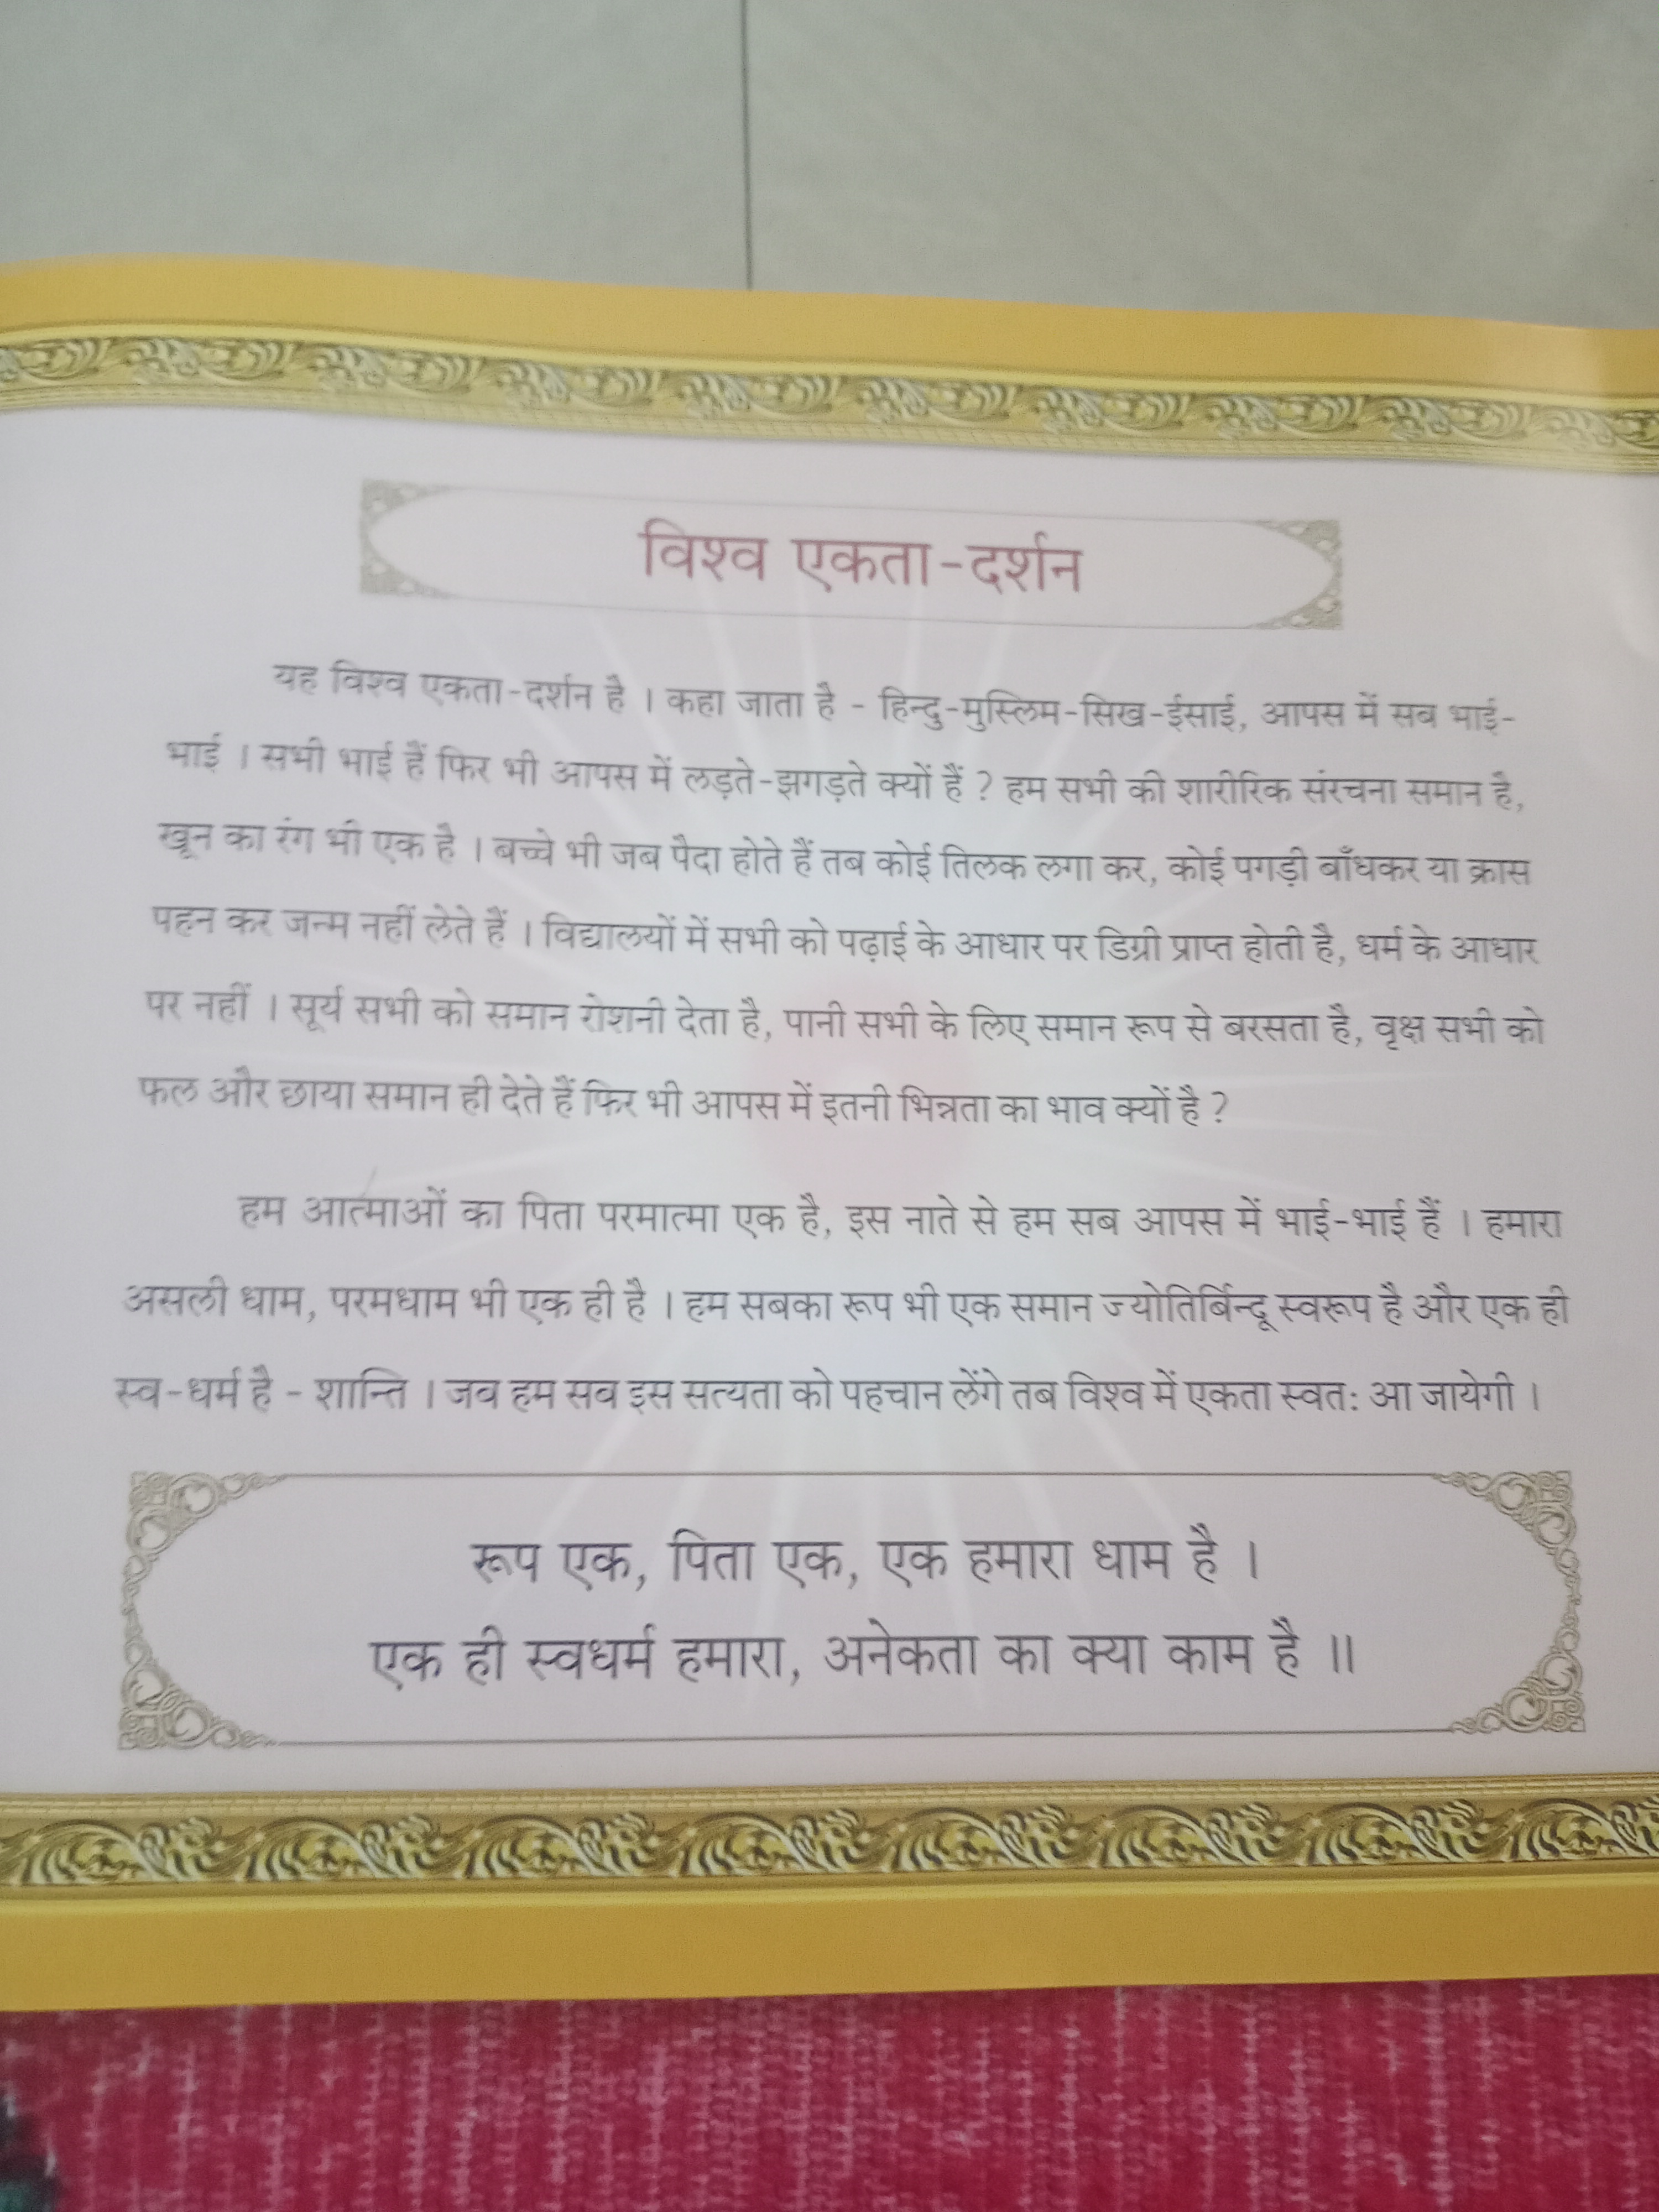 विश्व एकता-दर्शन
यह विश्व एकता-दर्शन है । कहा जाता है - हिन्दु-मुस्लिम-सिख-ईसाई, आपस में सब भाई-
भाई । सभी भाई हैं फिर भी आपस में लड़ते-झगड़ते क्यों हैं ? हम सभी की शारीरिक संरचना समान है,
खून का रंग भी एक है । बच्चे भी जब पैदा होते हैं तब कोई तिलक लगा कर, कोई पगड़ी बाँधकर या क्रास
पहन कर जन्म नहीं लेते हैं । विद्यालयों में सभी को पढ़ाई के आधार पर डिग्री प्राप्त होती है, धर्म के आधार
पर नहीं । सूर्य सभी को समान रोशनी देता है, पानी सभी के लिए समान रूप से बरसता है, वृक्ष सभी को
फल और छाया समान ही देते हैं फिर भी आपस में इतनी भिन्नता का भाव क्यों है ?
हम आत्माओं का पिता परमात्मा एक है, इस नाते से हम सब आपस में भाई-भाई हैं । हमारा
असली धाम, परमधाम भी एक ही है । हम सबका रूप भी एक समान ज्योतिर्बिन्दू स्वरूप है और एक ही
स्व-धर्म है - शान्ति । जब हम सब इस सत्यता को पहचान लेंगे तब विश्व में एकता स्वतः आ जायेगी ।
रूप एक, पिता एक, एक हमारा धाम है ।
एक ही स्वधर्म हमारा, अनेकता का क्या काम है ॥